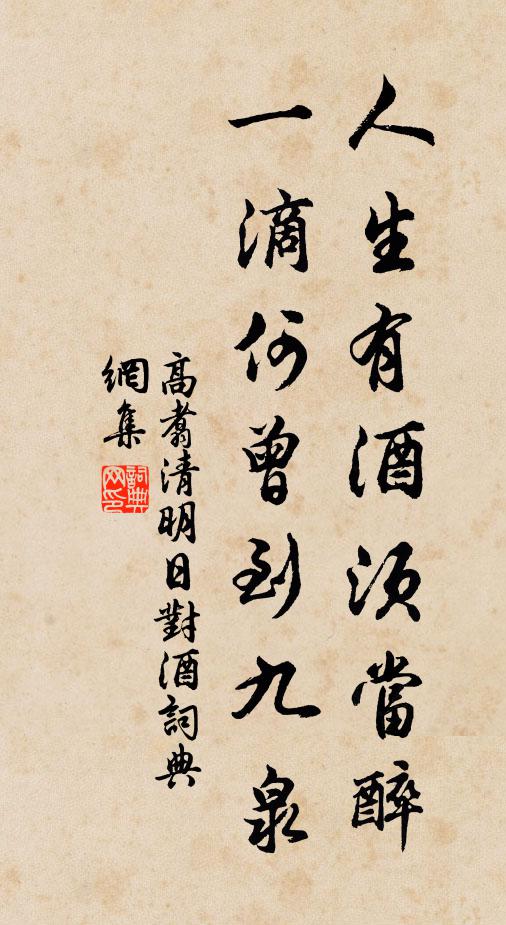 人生有酒須當醉
一滴何曾到九泉
高翥清明日對酒詞典
網集
詞典网印